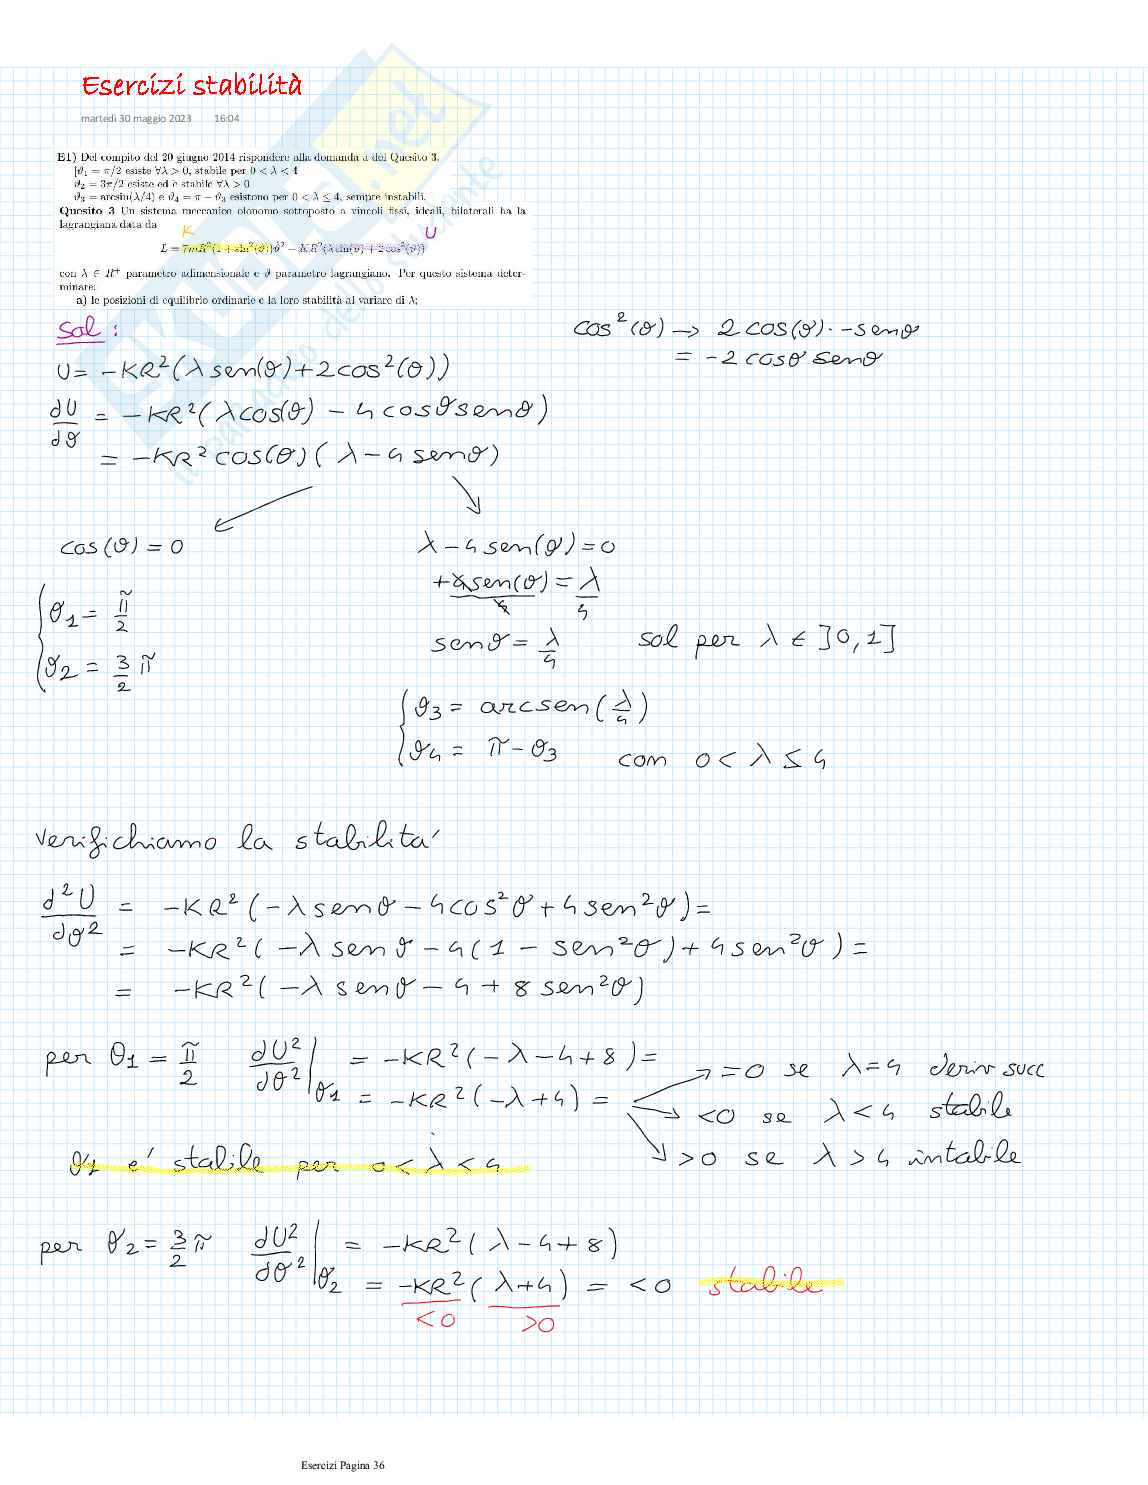 Esercizi stabilità
martedì 30 maggio 2023 16:04
E1) Del compito del 20 giugno 2014 rispondere alla domanda a del Quesito 3.
[ϑ₁ = π/2 esiste ∀λ > 0, stabile per 0 < λ < 4
ϑ₂ = 3π/2 esiste ed è stabile ∀λ > 0
ϑ₃ = arcsin(λ/4) e ϑ₄ = π − ϑ₃ esistono per 0 < λ ≤ 4, sempre instabili.
Quesito 3 Un sistema meccanico olonomo sottoposto a vincoli fissi, ideali, bilaterali ha la
lagrangiana data da
K U
L = 7mR²(1 + sin²(ϑ))ϑ̇² − KR²(λ sin(ϑ) + 2 cos²(ϑ))
con λ ∈ R⁺ parametro adimensionale e ϑ parametro lagrangiano. Per questo sistema deter-
minare:
a) le posizioni di equilibrio ordinarie e la loro stabilità al variare di λ;
sol :
cos²(ϑ) → 2 cos(ϑ) · -senϑ
= -2 cosϑ senϑ
U = -KR²(λ sen(ϑ)+2cos²(ϑ))
dU/dϑ = -KR²(λcos(ϑ) - 4cosϑsenϑ)
= -KR²cos(ϑ)(λ-4senϑ)
cos(ϑ) = 0
λ-4sen(ϑ)=0
+4sen(ϑ)/4 = λ/4
ϑ1 = π/2
ϑ2 = 3/2 π
senϑ = λ/4 sol per λ ∈ ]0,1]
ϑ3 = arcsen(λ/4)
ϑ4 = π-ϑ3 con 0 < λ ≤ 4
verifichiamo la stabilita'
d²U/dϑ² = -KR²(-λsenϑ-4cos²ϑ+4sen²ϑ)=
= -KR²(-λsenϑ-4(1-sen²ϑ)+4sen²ϑ)=
= -KR²(-λsenϑ-4+8sen²ϑ)
per ϑ1 = π/2 dU²/dϑ²|ϑ1 = -KR²(-λ-4+8)=
= -KR²(-λ+4)=
=0 se λ=4 deriv succ
<0 se λ<4 stabile
>0 se λ>4 intabile
ϑ1 e' stabile per 0<λ<4
per ϑ2 = 3/2 π dU²/dϑ²|ϑ2 = -KR²(λ-4+8)
= -KR²(λ+4) = <0 stabile
<0 >0
Esercizi Pagina 36